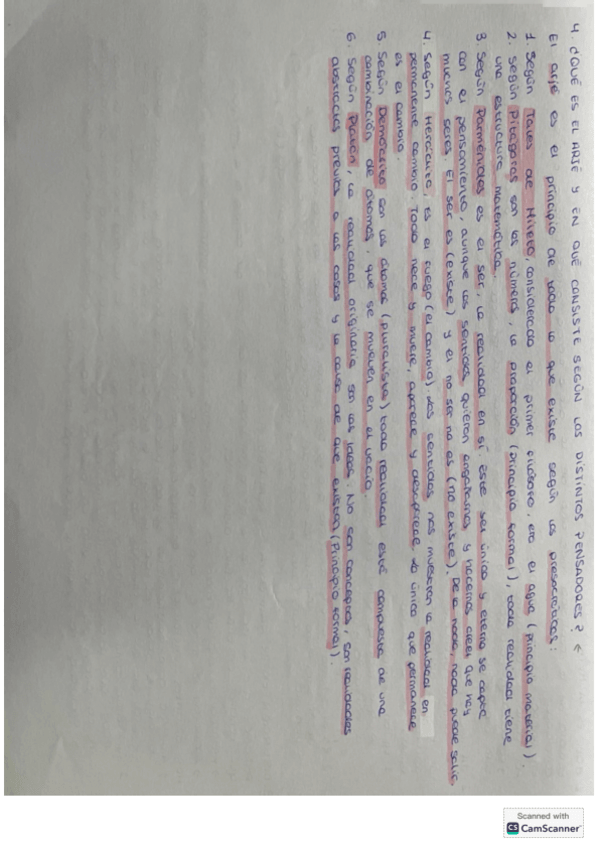 4. ¿QUÉ ES EL ARJÉ Y EN QUÉ CONSISTE SEGÚN LOS DISTINTOS PENSADORES?
El arjé es el principio de todo lo que existe según los presocráticos:
1. Según Tales de Mileto, considerado el primer filósofo, era el agua (principio material).
2. Según Pitágoras son los números, la proporción (principio formal), toda realidad tiene
una estructura matemática.
3. Según Parménides es el ser, la realidad en sí. Este ser único y eterno se capta
con el pensamiento, aunque los sentidos quieran engañarnos y hacernos creer que hay
muchos seres. El ser es (existe) y el no ser no es (no existe). De la nada, nada puede salir.
4. Según Heráclito, es el fuego (el cambio). Los sentidos nos muestran la realidad en
permanente cambio. Todo nace y muere, aparece y desaparece. Lo único que permanece
es el cambio.
5. Según Demócrito son los átomos (pluralista) toda realidad está compuesta de una
combinación de átomos, que se mueven en el vacío.
6. Según Platón, la realidad originaria son las Ideas. No son conceptos, son realidades
abstractas previas a las cosas y la causa de que existan (Principio formal).
Scanned with
CS CamScanner